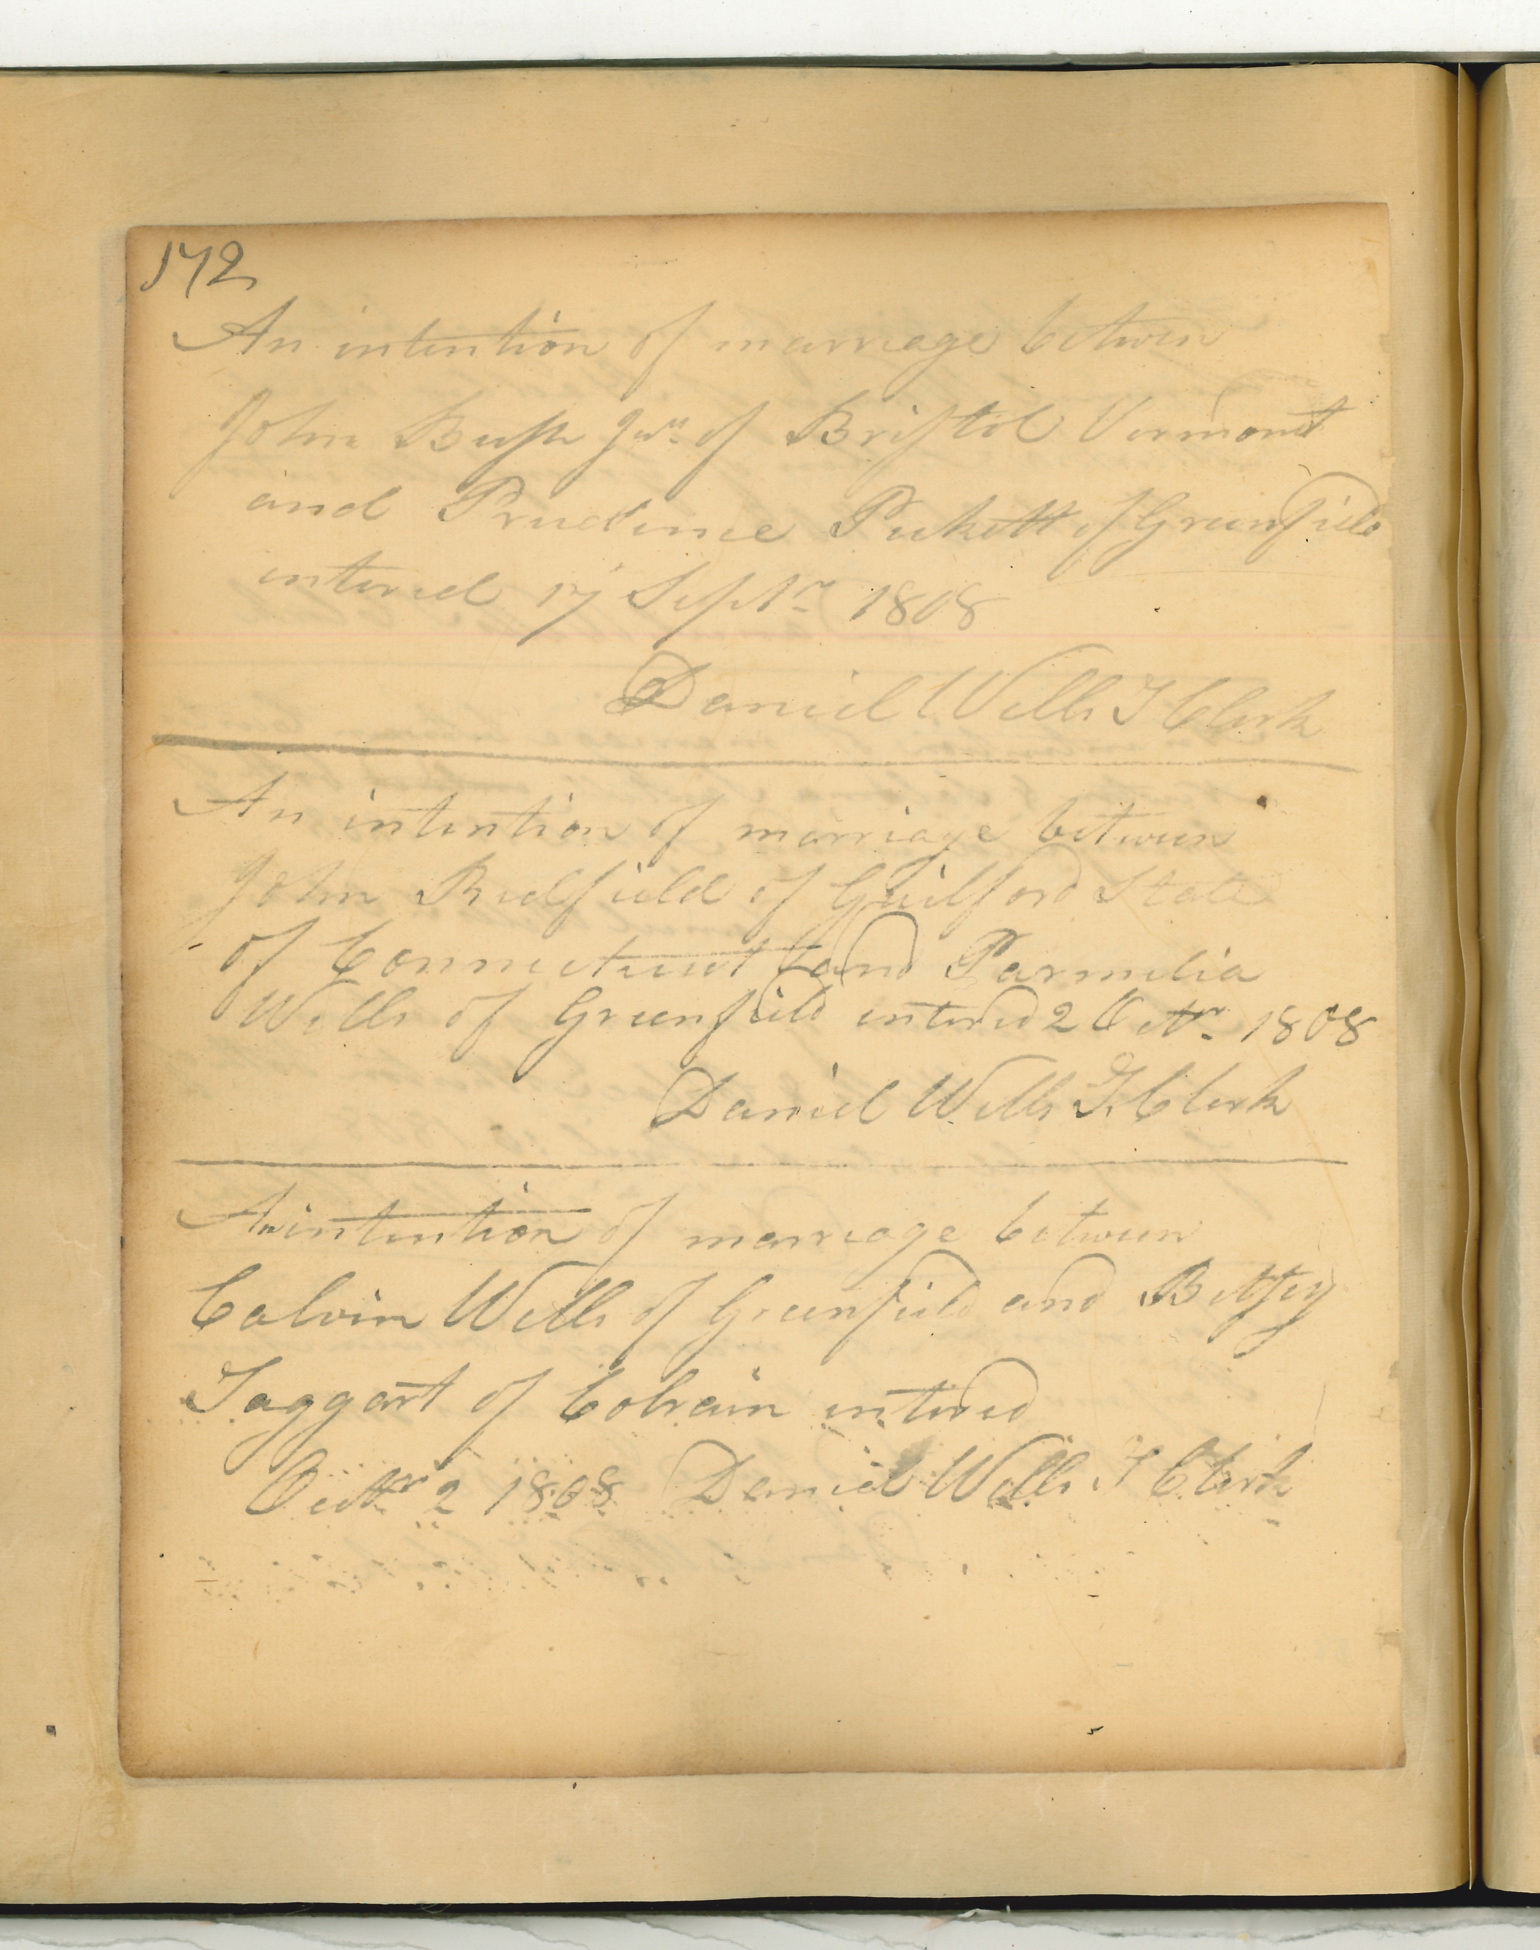 172
An intention of marriage between
John Bush Junr of Bristol Vermont
and Prudence Pickett of Greenfield
entered 17 Septr 1808
Daniel Wells T Clerk
An intention of marriage between
John Redfield of Guilford State
of Connecticut and Parmelia
Wells of Greenfield entered 2 Octr 1808
Daniel Wells T. Clerk
An intention of marriage between
Calvin Wells of Greenfield and Betsey
Taggart of Colrain entered
Octr 2 1808 Daniel Wells T Clerk